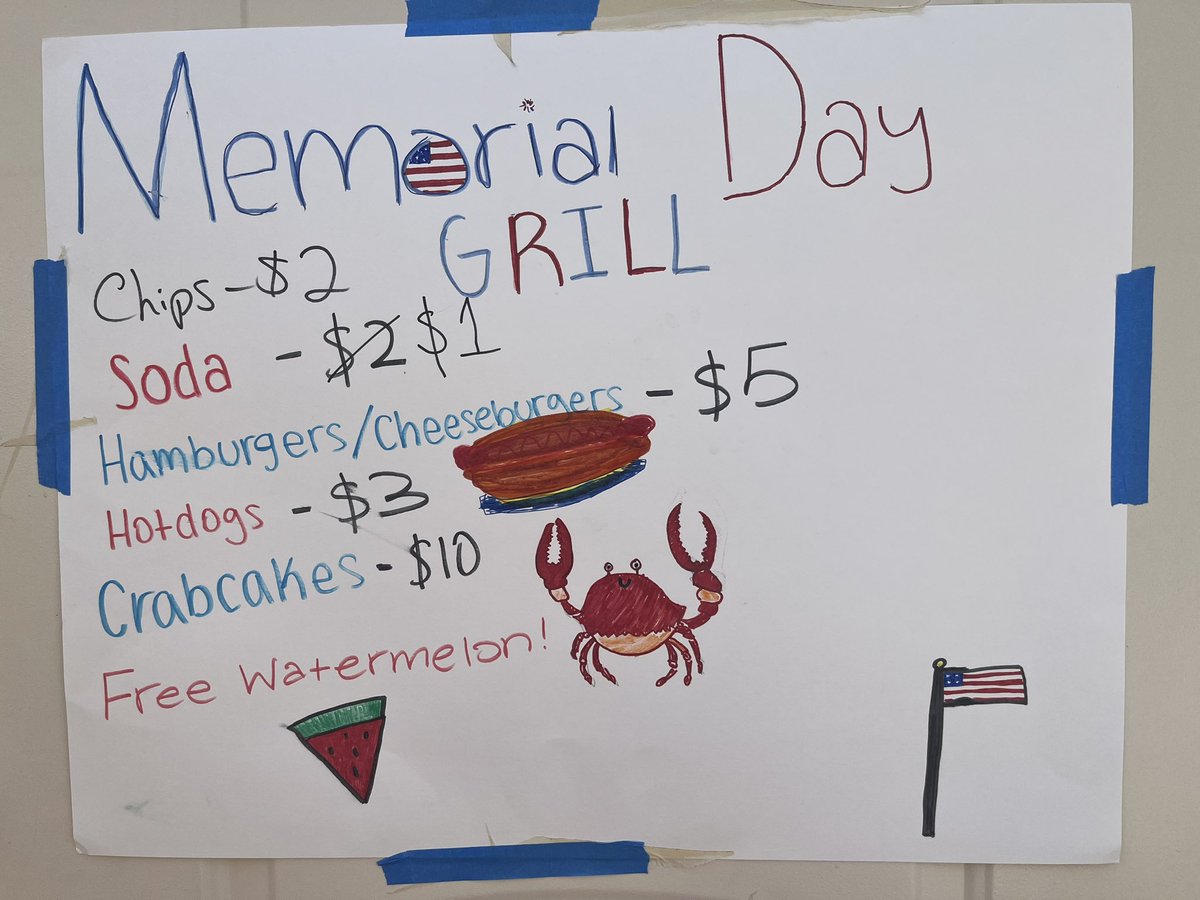 Memorial Day
GRILL
Chips - $2
Soda - $2 $1
Hamburgers/Cheeseburgers - $5
Hotdogs - $3
Crabcakes - $10
Free Watermelon!